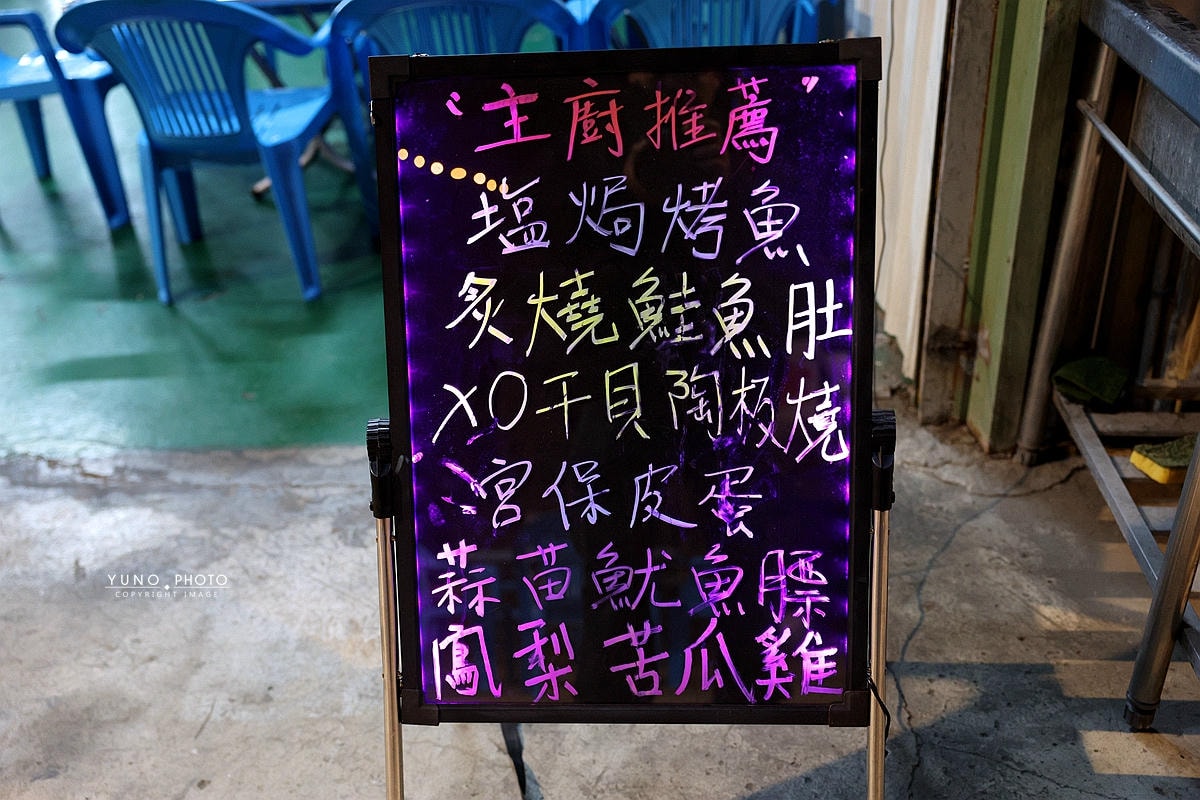 “主廚推薦”
塩焗烤魚
炙燒鮭魚肚
XO干貝陶板燒
宮保皮蛋
蒜苗魷魚膘
鳳梨苦瓜雞
YUNO PHOTO
COPYRIGHT IMAGE